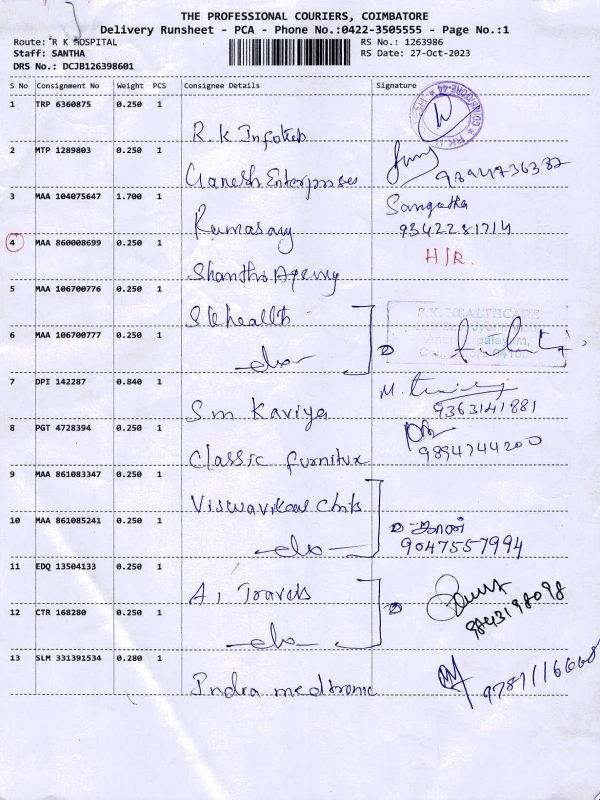 THE PROFESSIONAL COURIERS, COIMBATORE
Delivery Runsheet - PCA - Phone No.:0422-3505555 - Page No.:1
Route: R K HOSPITAL
RS No.: 1263986
Staff: SANTHA
RS Date: 27-Oct-2023
DRS No.: DCJB126398601
S No Consignment No Weight PCS Consignee Details Signature
1 TRP 6360875 0.250 1
R.K Infotech
2 MTP 1289803 0.250 1
Ganesh Enterprises
3 MAA 104075647 1.700 1 Sangetha
Ramasamy 9342281714
4 MAA 860008699 0.250 1 H/R.
Shanthi Agency
5 MAA 106700776 0.250 1
SK health S.K. HEALTHCARE
6 MAA 106700777 0.250 1
-do- ②
7 DPI 142287 0.840 1
S.m Kaviya 9363141881
8 PGT 4728394 0.250 1
Classic furnitux 9894744200
9 MAA 861083347 0.250 1
Viswavikas Chits
10 MAA 861085241 0.250 1 ②
-do- 9047557994
11 EDQ 13504133 0.250 1
A1 Travels
12 CTR 168280 0.250 1 ② 9843198098
-do-
13 SLM 331391534 0.280 1
Indra medtronic 9787116668